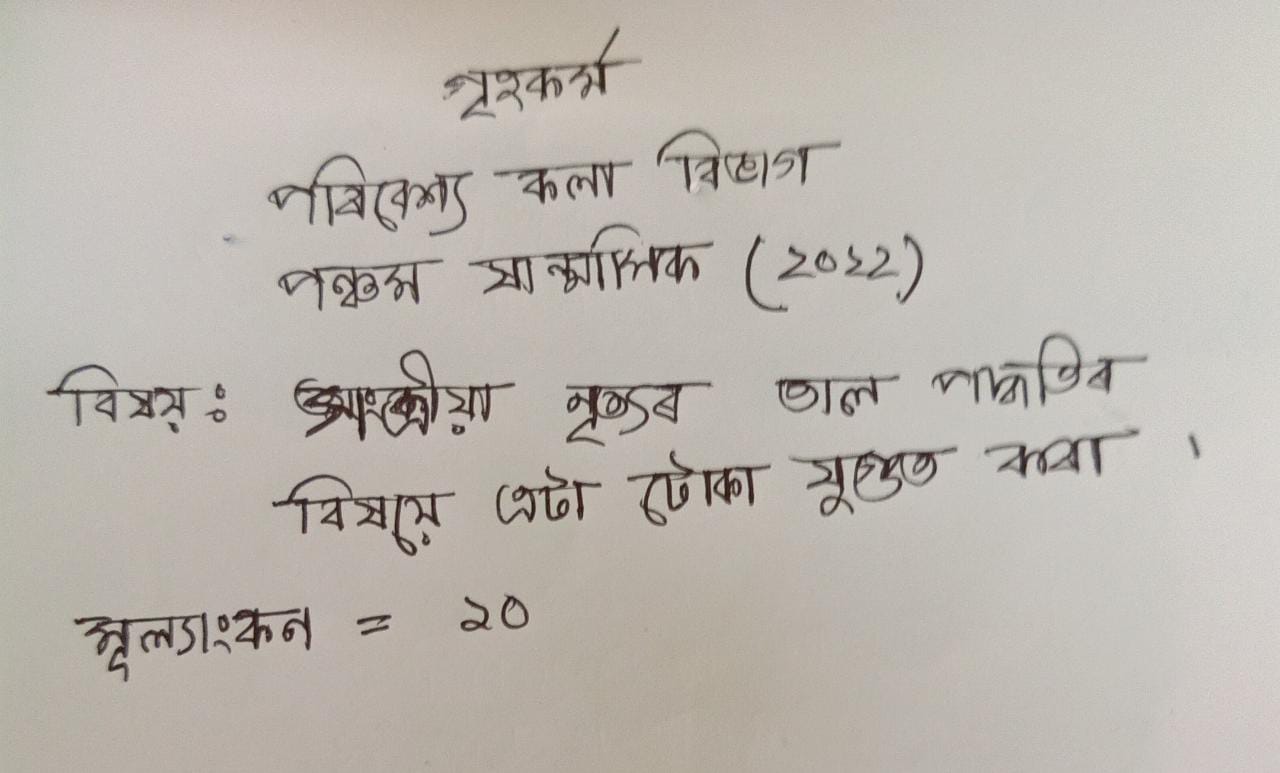 গৃহকৰ্ম
পৰিবেশ্য কলা বিভাগ
পঞ্চম ষান্মাসিক (২০২২)
বিষয়ঃ সত্ৰীয়া নৃত্যৰ তাল পদ্ধতিৰ
বিষয়ে এটা টোকা যুগুত কৰা ।
মূল্যাংকন = ২০